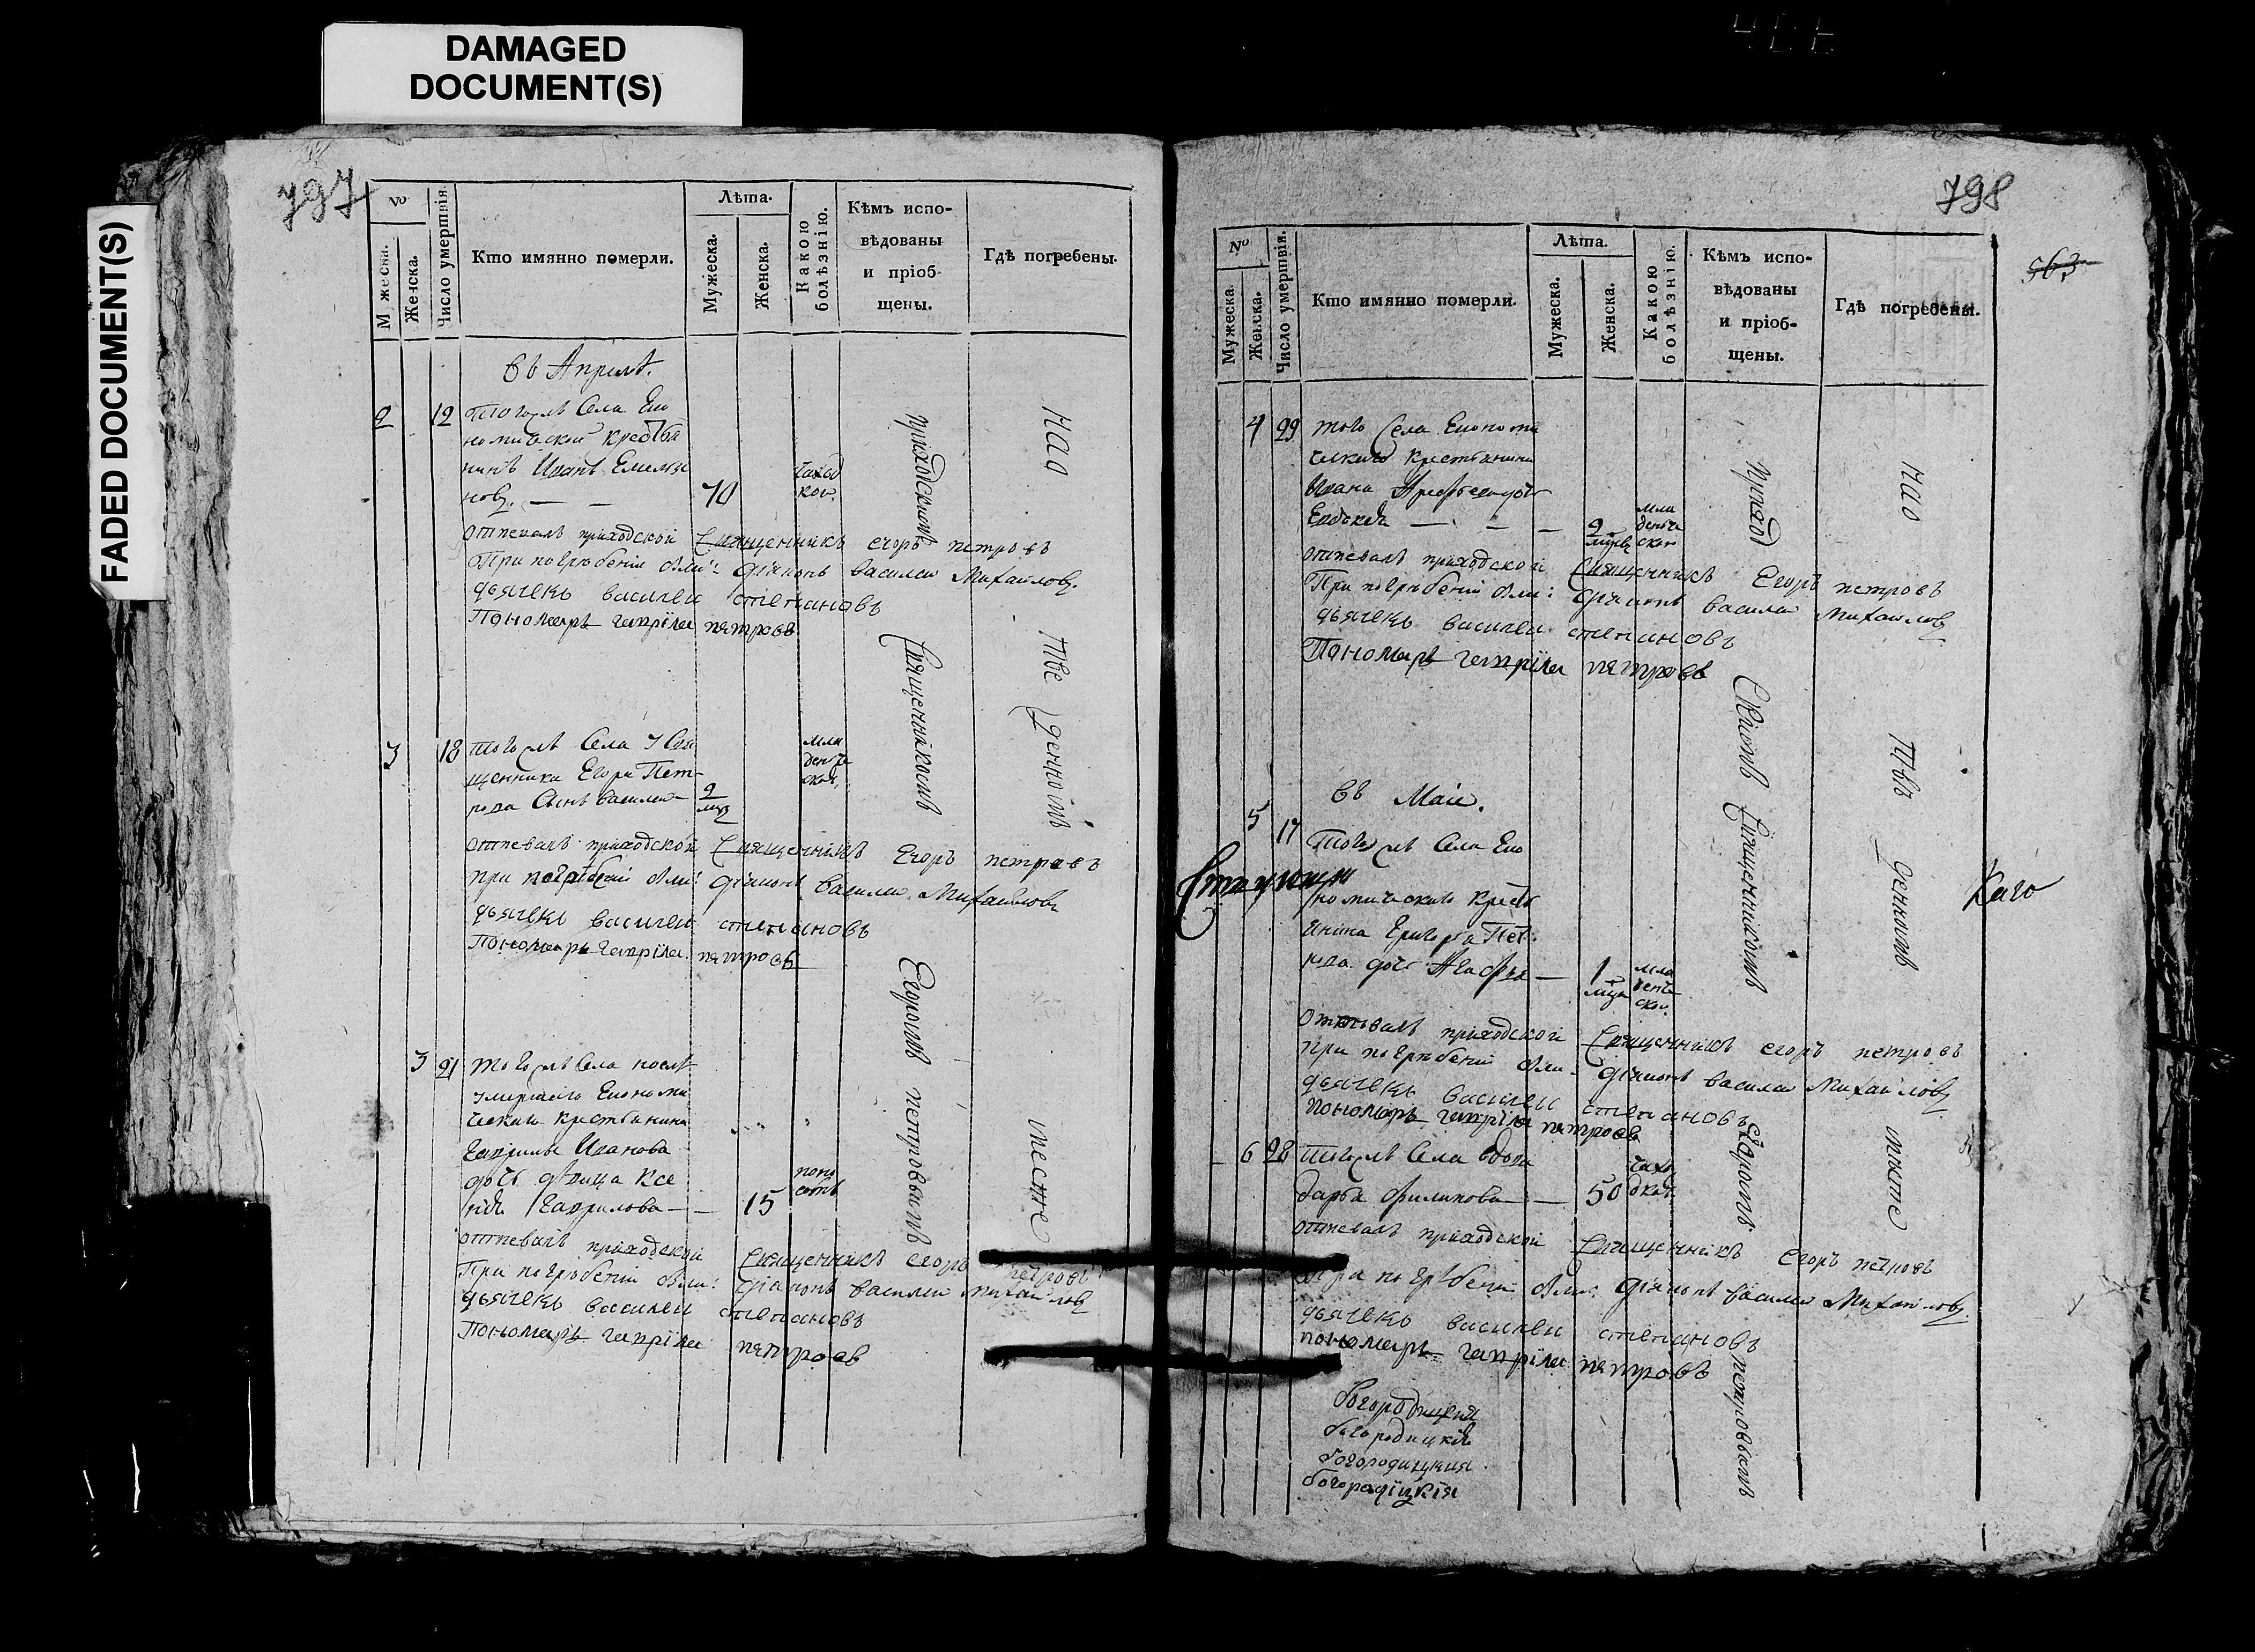 DAMAGED
DOCUMENT(S)
FADED DOCUMENT(S)
797
№
Мужеска.
Женска.
Число умертвія.
Кто имянно померли.
Лѣта.
Мужеска.
Женска.
Какою
болѣзнію.
Кѣмъ испо-
вѣдованы
и пріоб-
щены.
Гдѣ погребены.
въ Априлѣ.
2 12 тогожъ Села Еко
номической крестья
нинъ Иванъ Емелья
новъ. — — 70 чаход
кою.
отпевалъ приходской Священникъ егоръ петровъ
При погрѣбеніи были: діаконъ василеи Михаиловъ
дьячекъ василеи степановъ
Пономарь гаврiла петровъ
3 18 тогожъ Села у Свя
щенника Егора Пет-
рова Сынъ василеи — 9
мцъ
мла
денче
ской
отпевалъ приходской Священникъ Егоръ петровъ
при погрѣбеніи были: діаконъ василеи Михаиловъ
дьячекъ василеи степановъ
Пономарь гаврiла петровъ
3 21 тогожъ Села после
умершаго Економи
ческаго крестьянина
Гаврилы Иванова
дочь девица Ксе
нія Гаврилова — — 15
отпевалъ приходской Священникъ егоръ петровъ
При погрѣбеніи были: діаконъ василеи михаиловъ
дьячекъ василеи степановъ
Пономарь гаврiла петровъ
приходскимъ
Священникомъ
Егоромъ петровымъ
на о
тве
денномъ
месте
798
563
№
Мужеска.
Женска.
Число умертвія.
Кто имянно померли.
Лѣта.
Мужеска.
Женска.
Какою
болѣзнію.
Кѣмъ испо-
вѣдованы
и пріоб-
щены.
Гдѣ погребены.
4 29 того Села Економи
ческаго крестьянина
Ивана дочь
Евдокея — — — 9
мцовъ
мла
денче
ской
отпевалъ приходской Священникъ Егоръ петровъ
При погрѣбеніи были: діаконъ василеи Михаиловъ
дьячекъ василеи степановъ
Пономарь гаврiла петровъ
въ Маіи.
5 17 Тогожъ Села Еко
номическаго крестья
нина Григорья Пет-
рова дочь Агафья — 1
мца
мла
денче
ской
отпевалъ приходской Священникъ егоръ петровъ
при погрѣбеніи были: діаконъ василеи Михаиловъ
дьячекъ василеи степановъ
пономарь гаврiла петровъ
6 28 тогожъ Села вдова
дарья филипова — 50 чахо
дкою
отпевалъ приходской Священникъ Егоръ петровъ
при погрѣбеніи были: діаконъ василеи Михаиловъ
дьячекъ василеи степановъ
пономарь гаврiла петровъ
богородицкия
богородицкія
богородицкия
богородіцкія
приход
скимъ Священникомъ
Егоромъ
петровымъ
на о
твѣ
денномъ
месте
каго